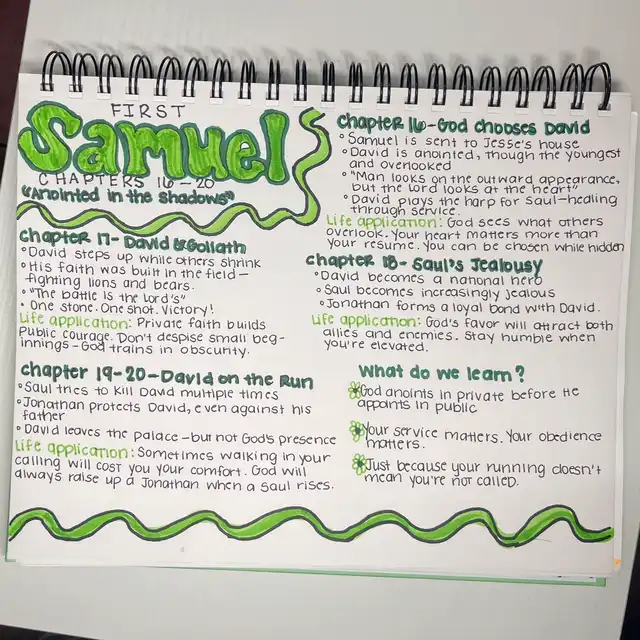 FIRST
Samuel
CHAPTERS 16-20
"Anointed in the shadows"
chapter 16-God chooses David
◦Samuel is sent to Jesse's house
◦David is anointed, though the youngest
and overlooked
◦"Man looks on the outward appearance,
but the Lord looks at the heart"
◦David plays the harp for Saul-healing
through service.
Life application: God sees what others
overlook. Your heart matters more than
your resume. You can be chosen while hidden
chapter 17- David & Goliath
◦David steps up while others shrink
◦His faith was built in the field—
fighting lions and bears.
◦"The battle is the Lord's"
◦One stone. One shot. Victory!
Life application: Private faith builds
Public courage. Don't despise small beg-
innings-God trains in obscurity.
chapter 18- Saul's Jealousy
◦David becomes a national hero
◦Saul becomes increasingly jealous
◦Jonathan forms a loyal bond with David.
Life application: God's favor will attract both
allies and enemies. Stay humble when
you're elevated.
chapter 19-20-David on the Run
◦Saul tries to kill David multiple times
◦Jonathan protects David, even against his
father
◦David leaves the palace—but not God's presence
Life application: Sometimes walking in your
calling will cost you your comfort. God will
always raise up a Jonathan when a Saul rises.
What do we learn?
God anoints in private before He
appoints in public
Your service matters. Your obedience
matters.
Just because your running doesn't
mean you're not called.